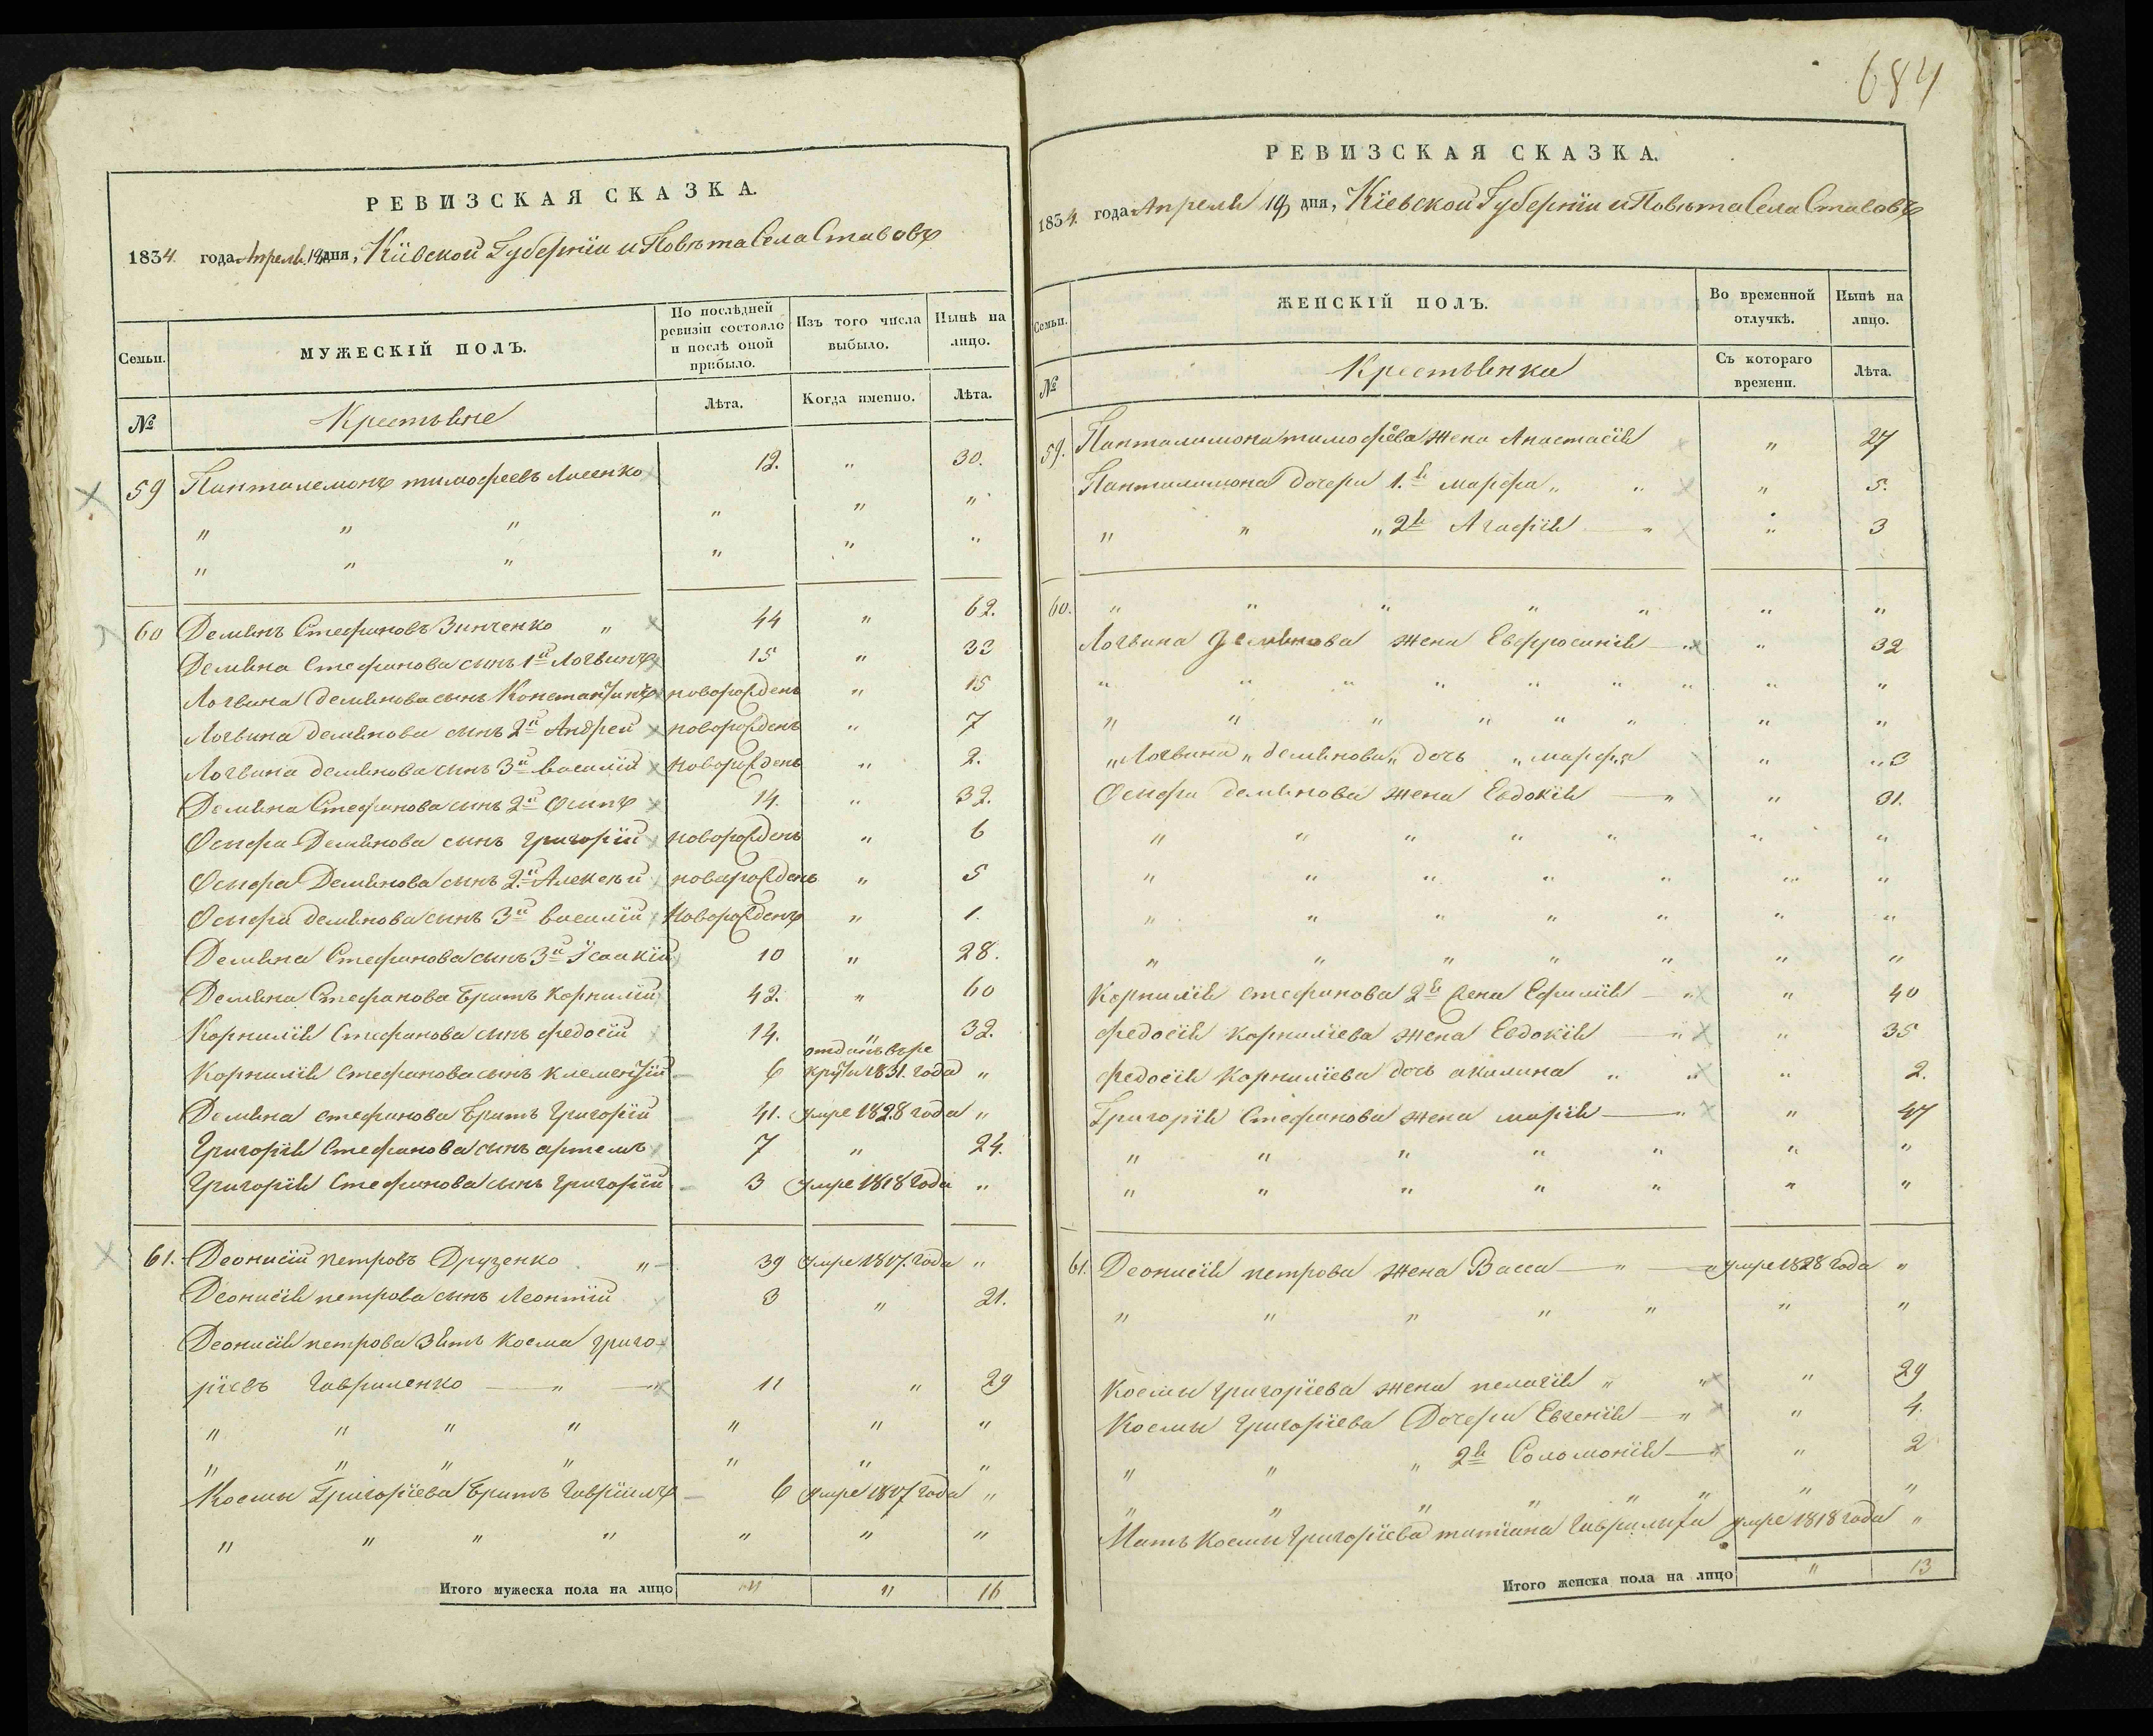 684
РЕВИЗСКАЯ СКАЗКА.
1834. года Апреля 19 дня, Кіевской Губерніи и Повѣта Села Ставовъ
Семьи. МУЖЕСКІЙ ПОЛЪ. По послѣдней ревизіи состояло и послѣ оной прибыло. Изъ того числа выбыло. Нынѣ на лицо.
№ Крестьяне Лѣта. Когда именно. Лѣта.
59 Пантелемонъ тимофеевъ Лисенко 12. " 30.
" " " " " "
" " " " " "
60 Демянъ Стефановъ Зинченко " 44 " 62.
Демяна Стефанова сынъ 1й Логвинъ 15 " 33
Логвина Демянова сынъ Константинъ новорожденъ " 15
Логвина демянова сынъ 2й Андрей новорожденъ " 7
Логвина демянова сынъ 3й василій новорожденъ " 2.
Демяна Стефанова сынъ 2й Осипъ 14. " 32.
Осифа Демянова сынъ григорій новорожденъ " 6
Осифа Демянова сынъ 2й Алексѣй новорожденъ " 5
Осифа демянова сынъ 3й василій новорожденъ " 1.
Демяна Стефанова сынъ 3й Ісаакій 10 " 28.
Демяна Стефанова братъ Корнилій 42. " 60
Корнилія Стефанова сынъ федосій 14. " 32.
Корнилія Стефанова сынъ клементій 6 отданъ въ рекруты 1831. года "
Демяна стефанова братъ Григорій 41. умре 1828 года "
Григорія Стефанова сынъ артемъ 7 " 24.
Григорія Стефанова сынъ григорій 3 умре 1818 года "
61. Деонисій петровъ Друзенко " 39 умре 1817. года "
Деонисія петрова сынъ Леонтій 3 " 21.
Деонисія петрова зять Косма григо-
ріевъ Гавриленко " " 11 " 29
" " " " " " "
" " " " " " "
Космы Григоріева братъ Гавріилъ 6 умре 1817 года "
" " " " " " "
Итого мужеска пола на лицо " " 16
РЕВИЗСКАЯ СКАЗКА.
1834. года Апреля 19 дня, Кіевской Губерніи и Повѣта Села Ставовъ
Семьи. ЖЕНСКІЙ ПОЛЪ. Во временной отлучкѣ. Нынѣ на лицо.
№ Крестьянки Съ котораго времени. Лѣта.
59. Пантелимона тимофѣева жена Анастасія " 27
Пантелимона дочери 1.я марфа " " " 5.
" " " 2я Агафія " " 3
60. " " " " " " "
Логвина Демянова жена Евфросинія " " 32
" " " " " " " " "
" " " " " " " "
" Логвина " демянова " дочь " марфа " " 3
Осифа демянова жена Евдокія " " 31.
" " " " " " "
" " " " " " "
" " " " " " "
" " " " " " "
Корнилія стефанова 2я жена Ефимія " " 40
федосія корниліева жена Евдокія " " 35
федосія Корниліева дочь акилина " " " 2.
Григорія Стефанова жена марія " " 47
" " " " " " "
" " " " " " "
61. Деонисія петрова жена Васса " " умре 1828 года "
" " " " " " "
Космы григоріева жена пелагія " " " 29
Космы григоріева Дочери Евгенія " " 4.
" " " 2я Соломонія " 2
" " " " " " " "
Мать Космы григоріева татіана умре 1818 года "
Итого женска пола на лицо " 13